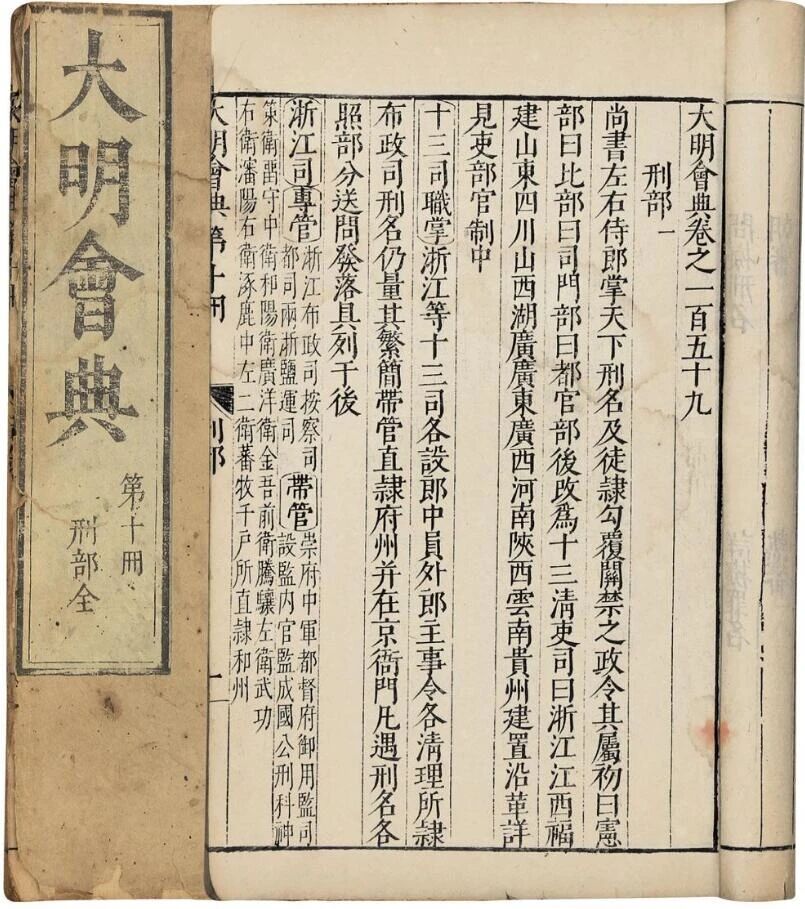 大明會典卷之一百五十九
刑部一
尚書左右侍郎掌天下刑名及徒隸勾覆關禁之政令其屬初曰憲
部曰比部曰司門部曰都官部後改爲十三清吏司曰浙江江西福
建山東四川山西湖廣廣東廣西河南陝西雲南貴州建置沿革詳
見吏部官制中
十三司職掌浙江等十三司各設郎中員外郎主事令各清理所隸
布政司刑名仍量其繁簡帶管直隸府州并在京衙門凡遇刑名各
照部分送問發落具列于後
浙江司專管
浙江布政司按察司
都司兩浙鹽運司
帶管
崇府中軍都督府御用監司
設監內官監成國公刑科神
策衛畱守中衛和陽衛廣洋衛金吾前衛騰驤左衛武功
右衛瀋陽右衛涿鹿中左二衛蕃牧千戶所直隸和州
大明會典第十冊 刑部
大明會典
第十冊
刑部全